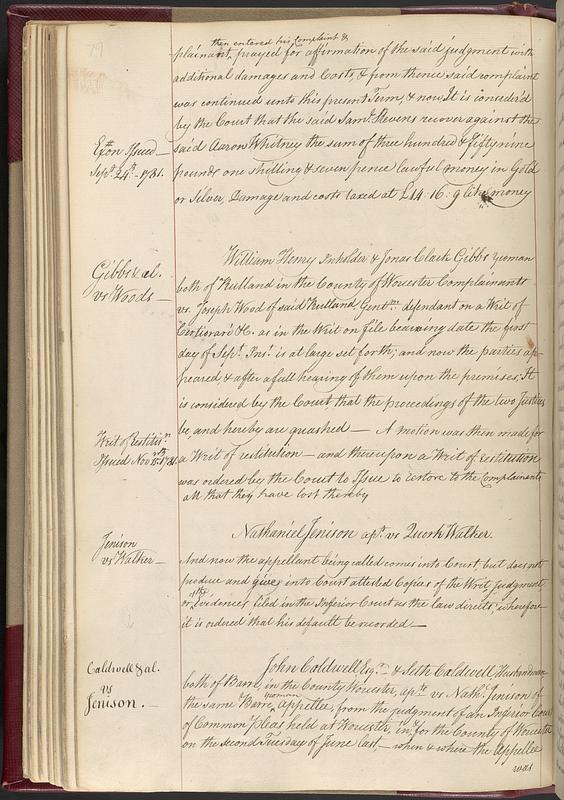 79
then entered his Complaint &
plainant, prayed for affirmation of the said judgment with
additional damages and Costs, & from thence said complaint
was continued unto this present Term, & now It is consider'd
by the Court that the said Saml. Stevens recover against the
Exon Issued —
said Aaron Whitney the sum of three hundred & fifty nine
Sept. 24th. 1781.
pounds one shilling & seven pence lawful money in Gold
or Silver, Damage and costs taxed at £14.16.9 like money
William Henry Inholder & Jonas Clark Gibbs yeoman
Gibbs & al.
vs Woods —
both of Rutland in the County of Worcester Complainants
vs. Joseph Wood of said Rutland Gentn. defendant on a Writ of
Certiorari &c. as in the Writ on file bearing date the first
day of Sept. Inst. is at large set forth; and now the parties ap-
peared, & after a full hearing of them upon the premises; It
is considered by the Court, that the proceedings of the two Justices
be, and hereby are quashed — A motion was then made for
Writ of restitun.
Issued Nov. 1781.
a Writ of restitution — and thereupon a Writ of restitution
was ordered by the Court to Issue to restore to the Complainants
all that they have lost thereby
Nathaniel Jenison apt. vs Quork Walker.
Jenison
vs Walker —
And now the appellant being called comes into Court, but does not
produce and give into Court attested Copies of the Writ, judgment
or the Evidences filed in the Inferior Court as the law directs, wherefore
it is ordered that his default be recorded —
Caldwell & al.
vs
Jenison. —
John Caldwell Esqr. & Seth Caldwell Husbandman
both of Barre, in the County Worcester, apts. vs Nathl. Jenison of
the same Barre yeoman Appellee, from the judgment of an Inferior Court
of Common Pleas held at Worcester, in & for the County of Worcester
on the second Tuesday of June last, — when & where the Appellee
was